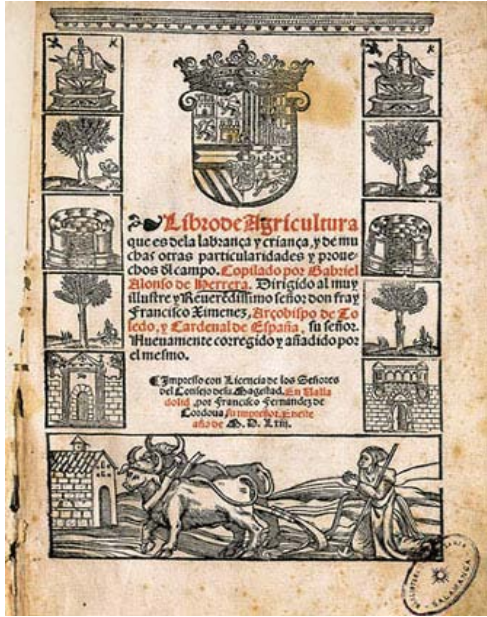 Libro de Agricultura
que es dela labrança y criança, y de mu
chas otras particularidades y proue
chos dl campo. Copilado por Gabriel
Alonso de Herrera. Dirigido al muy
illustre y Reuerēdissimo señor don fray
Francisco Ximenez, Arçobispo de To
ledo, y Cardenal de España, su señor.
Nueuamente corregido y añadido por
el mesmo.
Impresso con Licencia de los Señores
del Consejo de su Magestad. En Valla
dolid, por Francisco Fernandez de
Cordoua su impressor. En este
año de M. D. Lxiij.
SALAMANCA